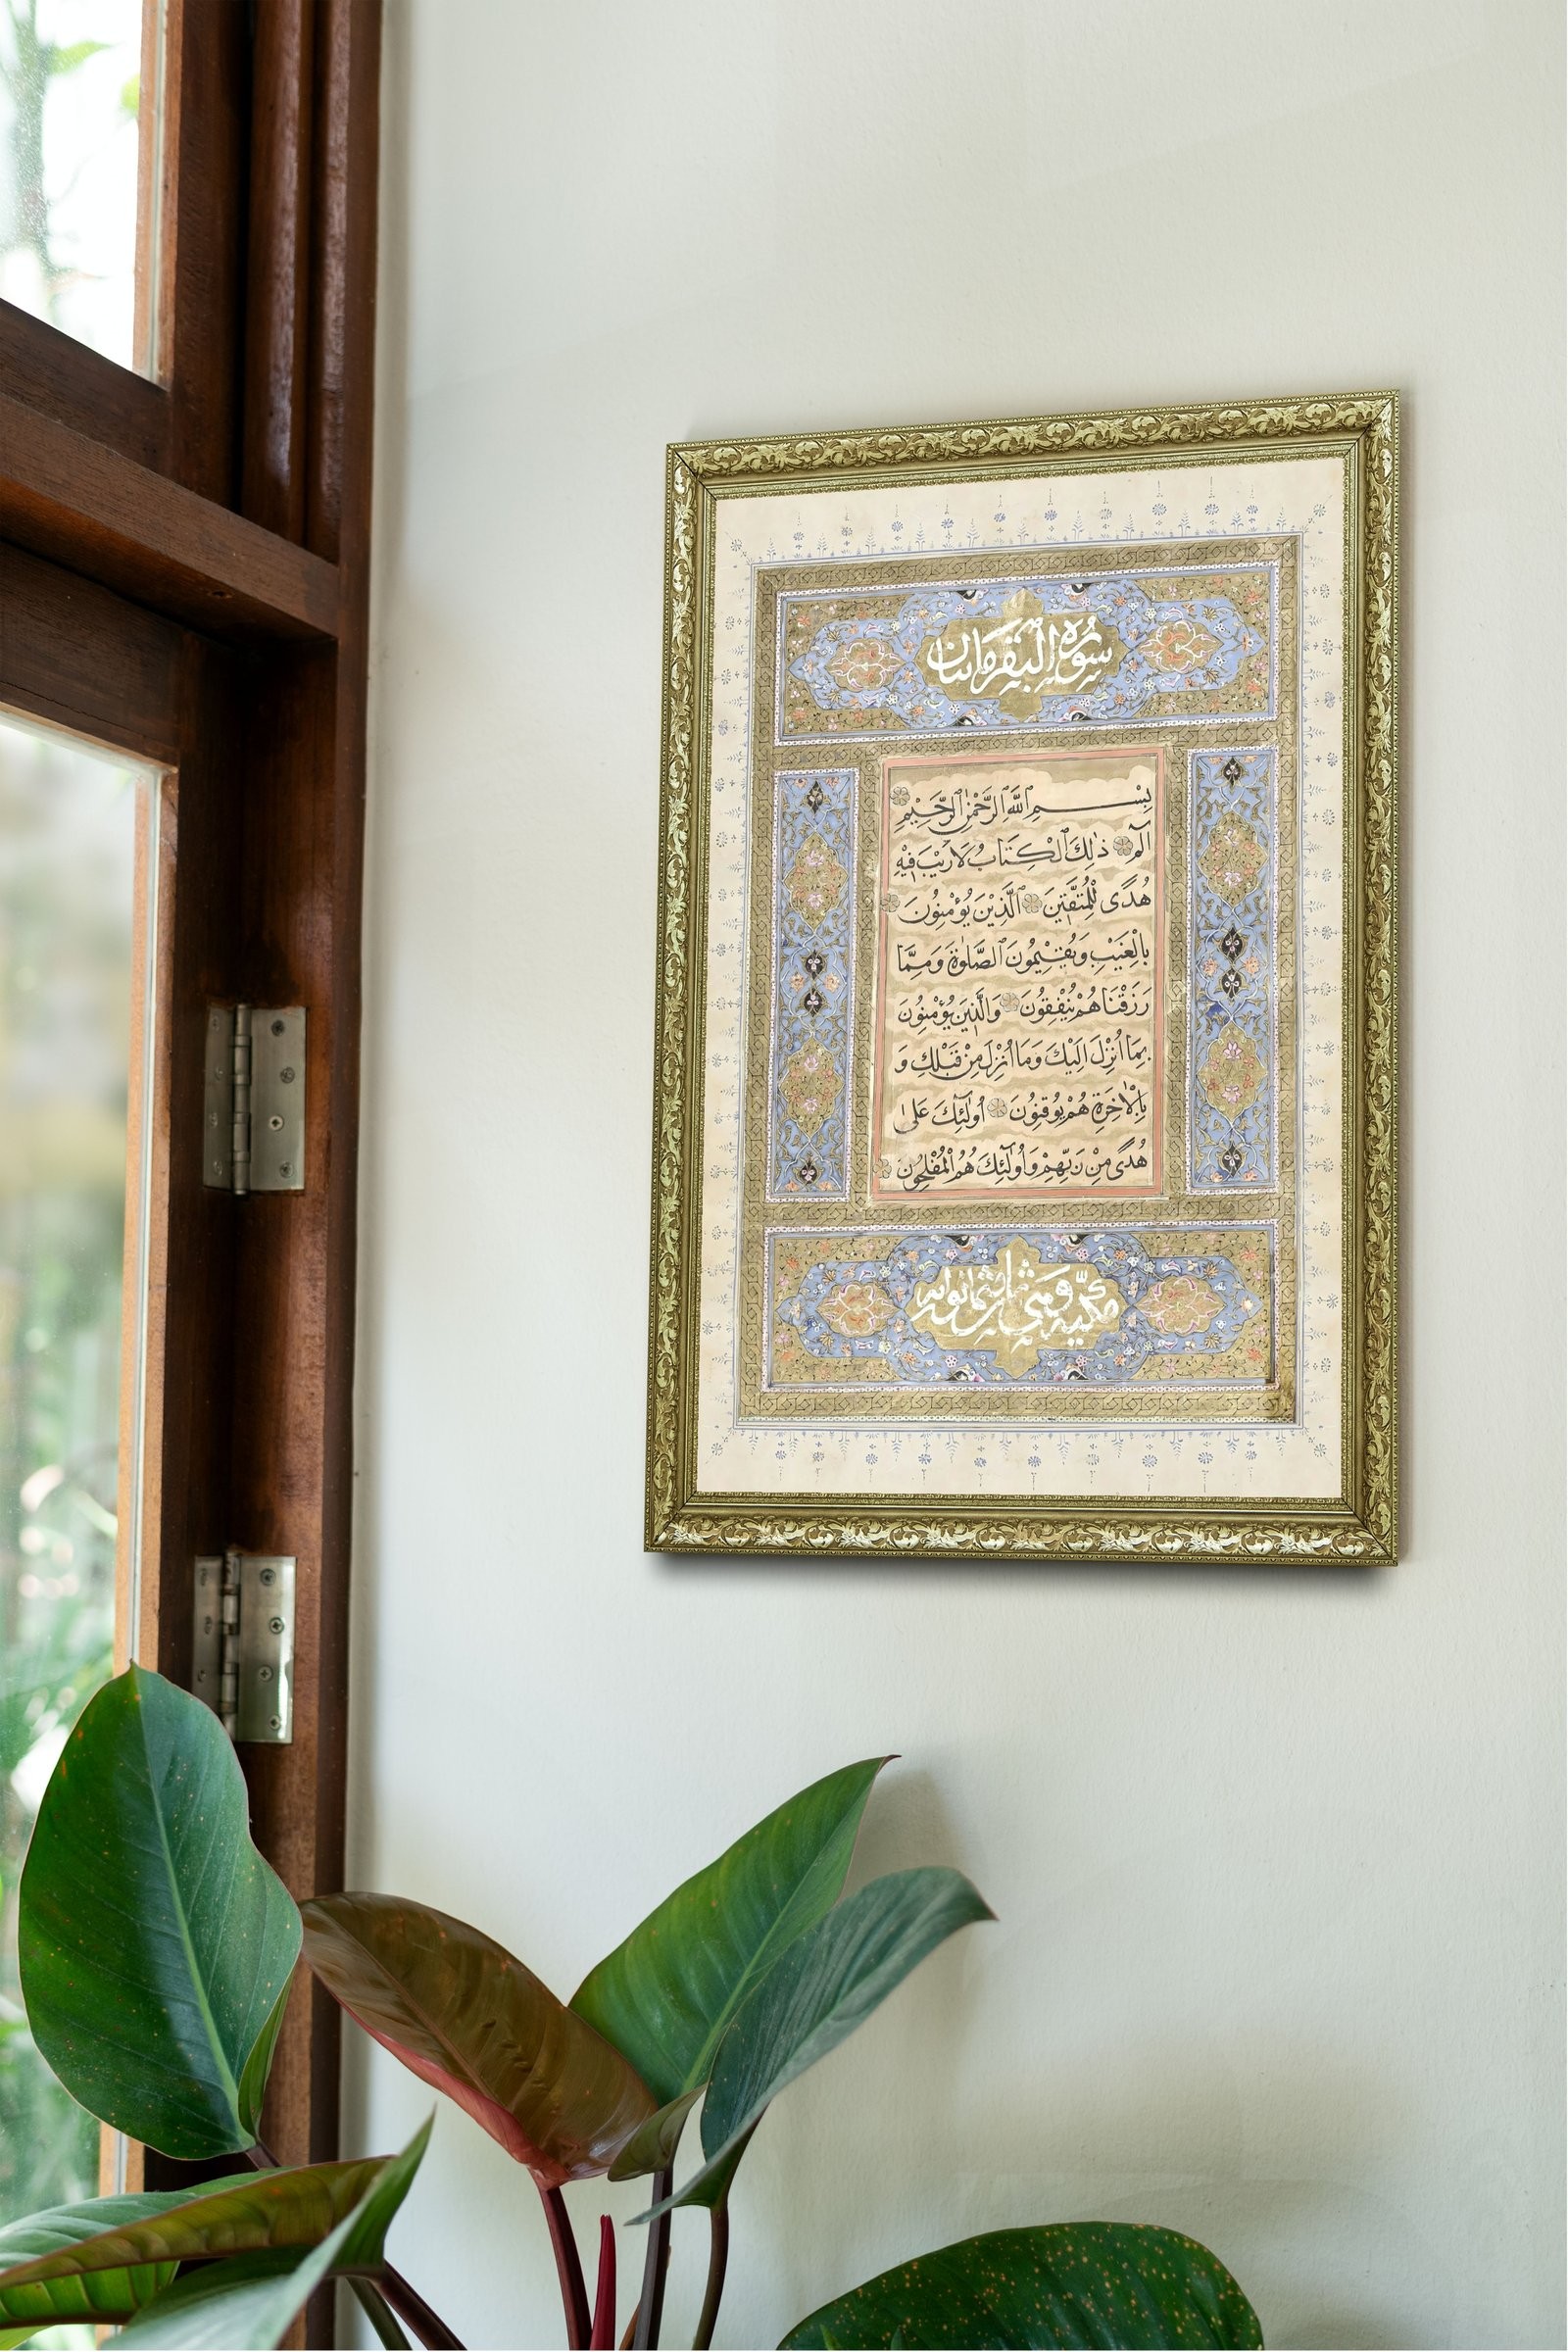 سورة البقرة مائتان
بِسْمِ اللهِ الرَّحْمٰنِ الرَّحِيْمِ
الٓمٓ ذٰلِكَ الْكِتَابُ لَا رَيْبَ فِيْهِ
هُدًى لِلْمُتَّقِيْنَ الَّذِيْنَ يُؤْمِنُوْنَ
بِالْغَيْبِ وَيُقِيْمُوْنَ الصَّلٰوةَ وَمِمَّا
رَزَقْنَاهُمْ يُنْفِقُوْنَ وَالَّذِيْنَ يُؤْمِنُوْنَ
بِمَا اُنْزِلَ اِلَيْكَ وَمَا اُنْزِلَ مِنْ قَبْلِكَ وَ
بِالْاٰخِرَةِ هُمْ يُوْقِنُوْنَ اُولٰٓئِكَ عَلٰى
هُدًى مِنْ رَبِّهِمْ وَاُولٰٓئِكَ هُمُ الْمُفْلِحُوْنَ